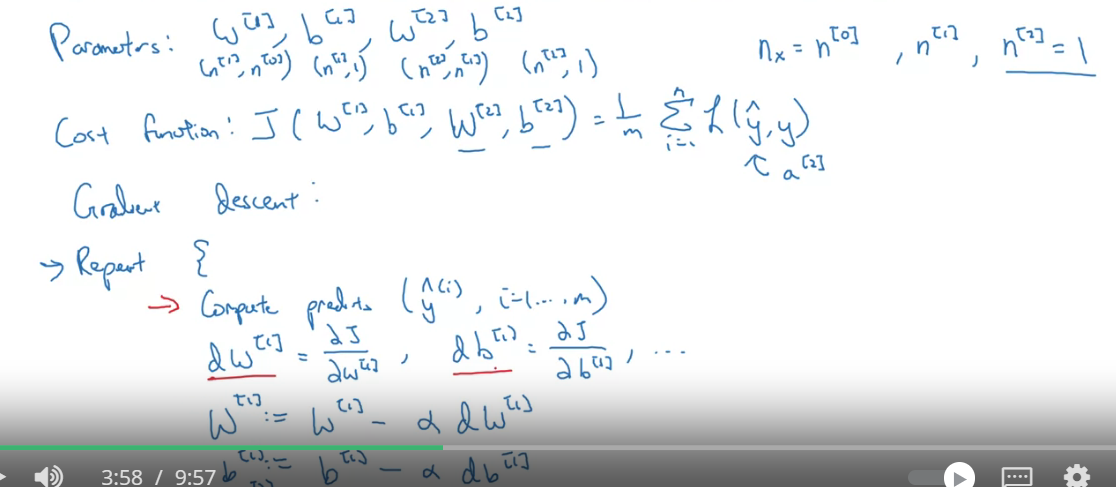 Parameters: W^[1], b^[1], W^[2], b^[2] n_x = n^[0], n^[1], n^[2] = 1
(n^[1], n^[0]) (n^[1], 1) (n^[2], n^[1]) (n^[2], 1)
Cost function: J(W^[1], b^[1], W^[2], b^[2]) = 1/m Σ_{i=1}^n L(ŷ, y)
↑ a^[2]
Gradient descent:
→ Repeat {
→ Compute predicts (ŷ^(i), i=1...,m)
dW^[1] = ∂J/∂W^[1], db^[1] = ∂J/∂b^[1], ...
W^[1] := W^[1] - α dW^[1]
b^[1] := b^[1] - α db^[1]
3:58 / 9:57